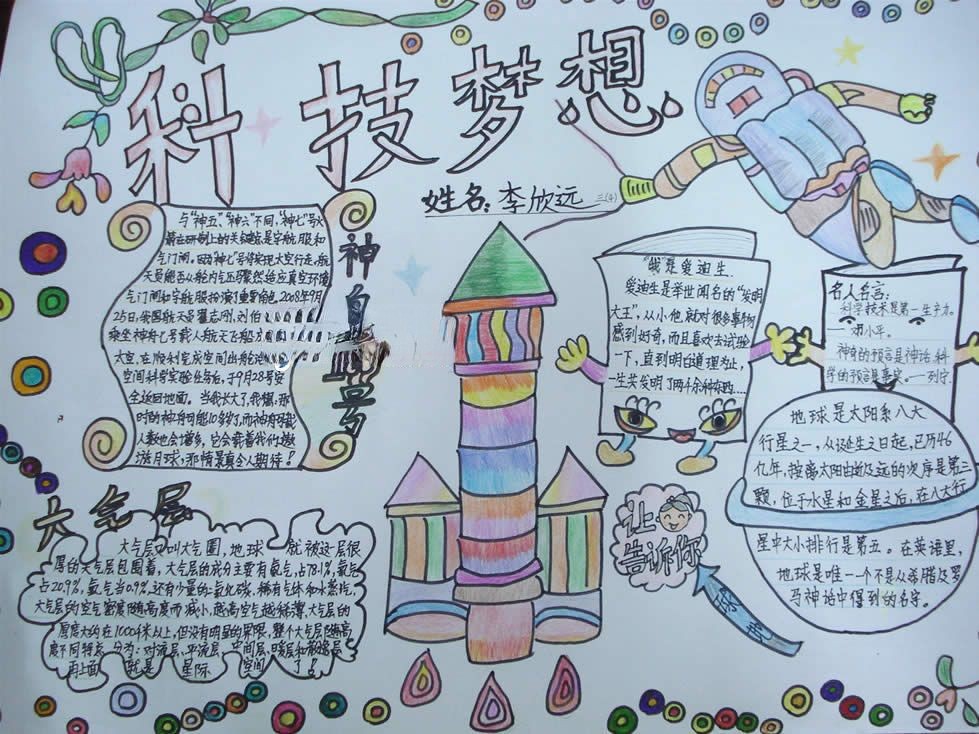 科技梦想
姓名:李欣远 三(4)
神
舟
号
与“神五”、“神六”不同,“神七”号火
箭在研制上的关键就是宇航服和
气门闸。因为“神七”号将实现太空行走,航
天员能否从轮内气压骤然适应真空环境
气门闸和宇航服扮演了重要角色。2008年9月
25日,我国航天员翟志刚、刘伯
乘坐神舟七号载人航天飞船
太空,在顺利完成空间出舱
空间科学实验任务后,于9月28号安
全返回地面。当我长大了,我想,那
时的神舟可能10多岁了,而神舟可载
人数也会增多,它会载着我们遨
游月球,那情景真令人期待!
大气层
大气层又叫大气圈,地球就被这层很
厚的大气层包围着,大气层的成分主要有氮气,占78.1%,氧气
占20.9%,氩气占0.9%,还有少量的二氧化碳、稀有气体和水蒸汽,
大气层的空气密度随高度而减小,越高空气越稀薄,大气层的
厚度大约在1000千米以上,但没有明显的界限,整个大气层随高
度不同特点分为:对流层、平流层、中间层、暖层和散逸层,
再上面就是星际空间了!
“我”是爱迪生.
爱迪生是举世闻名的“发明
大王”,从小他就对很多事物
感到好奇,而且喜欢去试验
一下,直到明白道理为止,
一生共发明了两千余种东西…
名人名言:
科学技术是第一生产力.
——邓小平.
神奇的预言是神话,科
学的预言是事实。——列宁.
让
告诉你
地球是太阳系八大
行星之一,从诞生之日起,已历46
亿年,按离太阳由近及远的次序是第三
颗,位于水星和金星之后,在八大行
星中大小排行是第五。在英语里,
地球是唯一一个不是从希腊及罗
马神话中得到的名字。